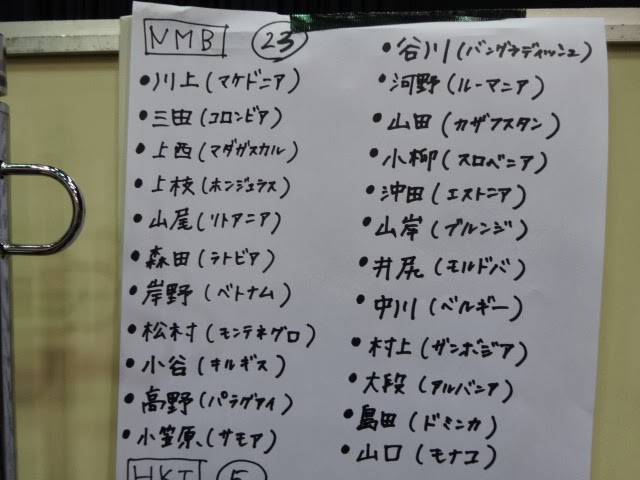 NMB 23
•川上(マケドニア)
•三田(コロンビア)
•上西(マダガスカル)
•上枝(ホンジュラス)
•山尾(リトアニア)
•森田(ラトビア)
•岸野(ベトナム)
•松村(モンテネグロ)
•小谷(キルギス)
•高野(パラグアイ)
•小笠原、(サモア)
•谷川(バングラディッシュ)
•河野(ルーマニア)
•山田(カザフスタン)
•小柳(スロベニア)
•沖田(エストニア)
•山岸(ブルンジ)
•井尻(モルドバ)
•中川(ベルギー)
•村上(ザンボジア)
•大段(アルバニア)
•島田(ドミニカ)
•山口(モナコ)
HKT 5